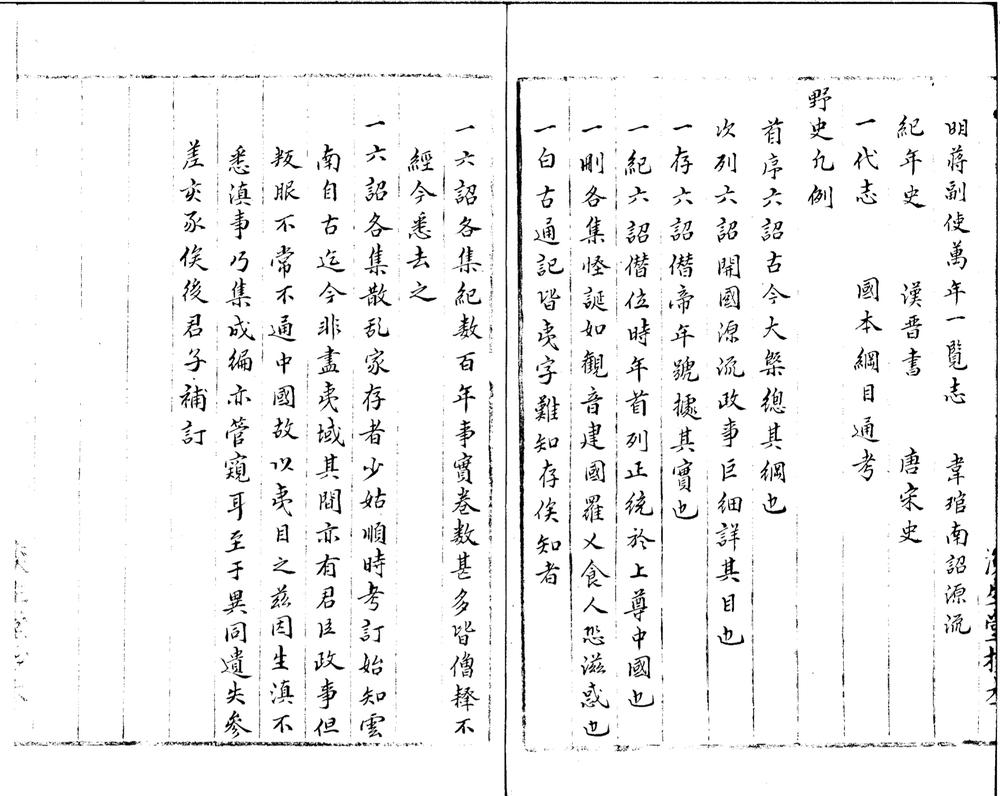 明蔣副使萬年一覧志　韋琯南詔源流
紀年史　漢晋書　唐宋史
一代志　國本綱目通考
野史凡例
首序六詔古今大槩總其綱也
次列六詔開國源流政事巨細詳其目也
一存六詔僣帝年號據其實也
一紀六詔僣位時年首列正统於上尊中國也
一刪各集怪誕如觀音建國羅乂食人恐滋惑也
一白古通記皆夷字難知存俟知者
一六詔各集紀数百年事實卷数甚多皆僧擇不
經今悉去之
一六詔各集散乱家存者少姑順時考訂始知雲
南自古迄今非盡夷域其間亦有君臣政事但
叛服不常不通中國故以夷目之兹因生滇不
悉滇事乃集成编亦管窺耳至于異同遺失參
差亥豕俟後君子補訂